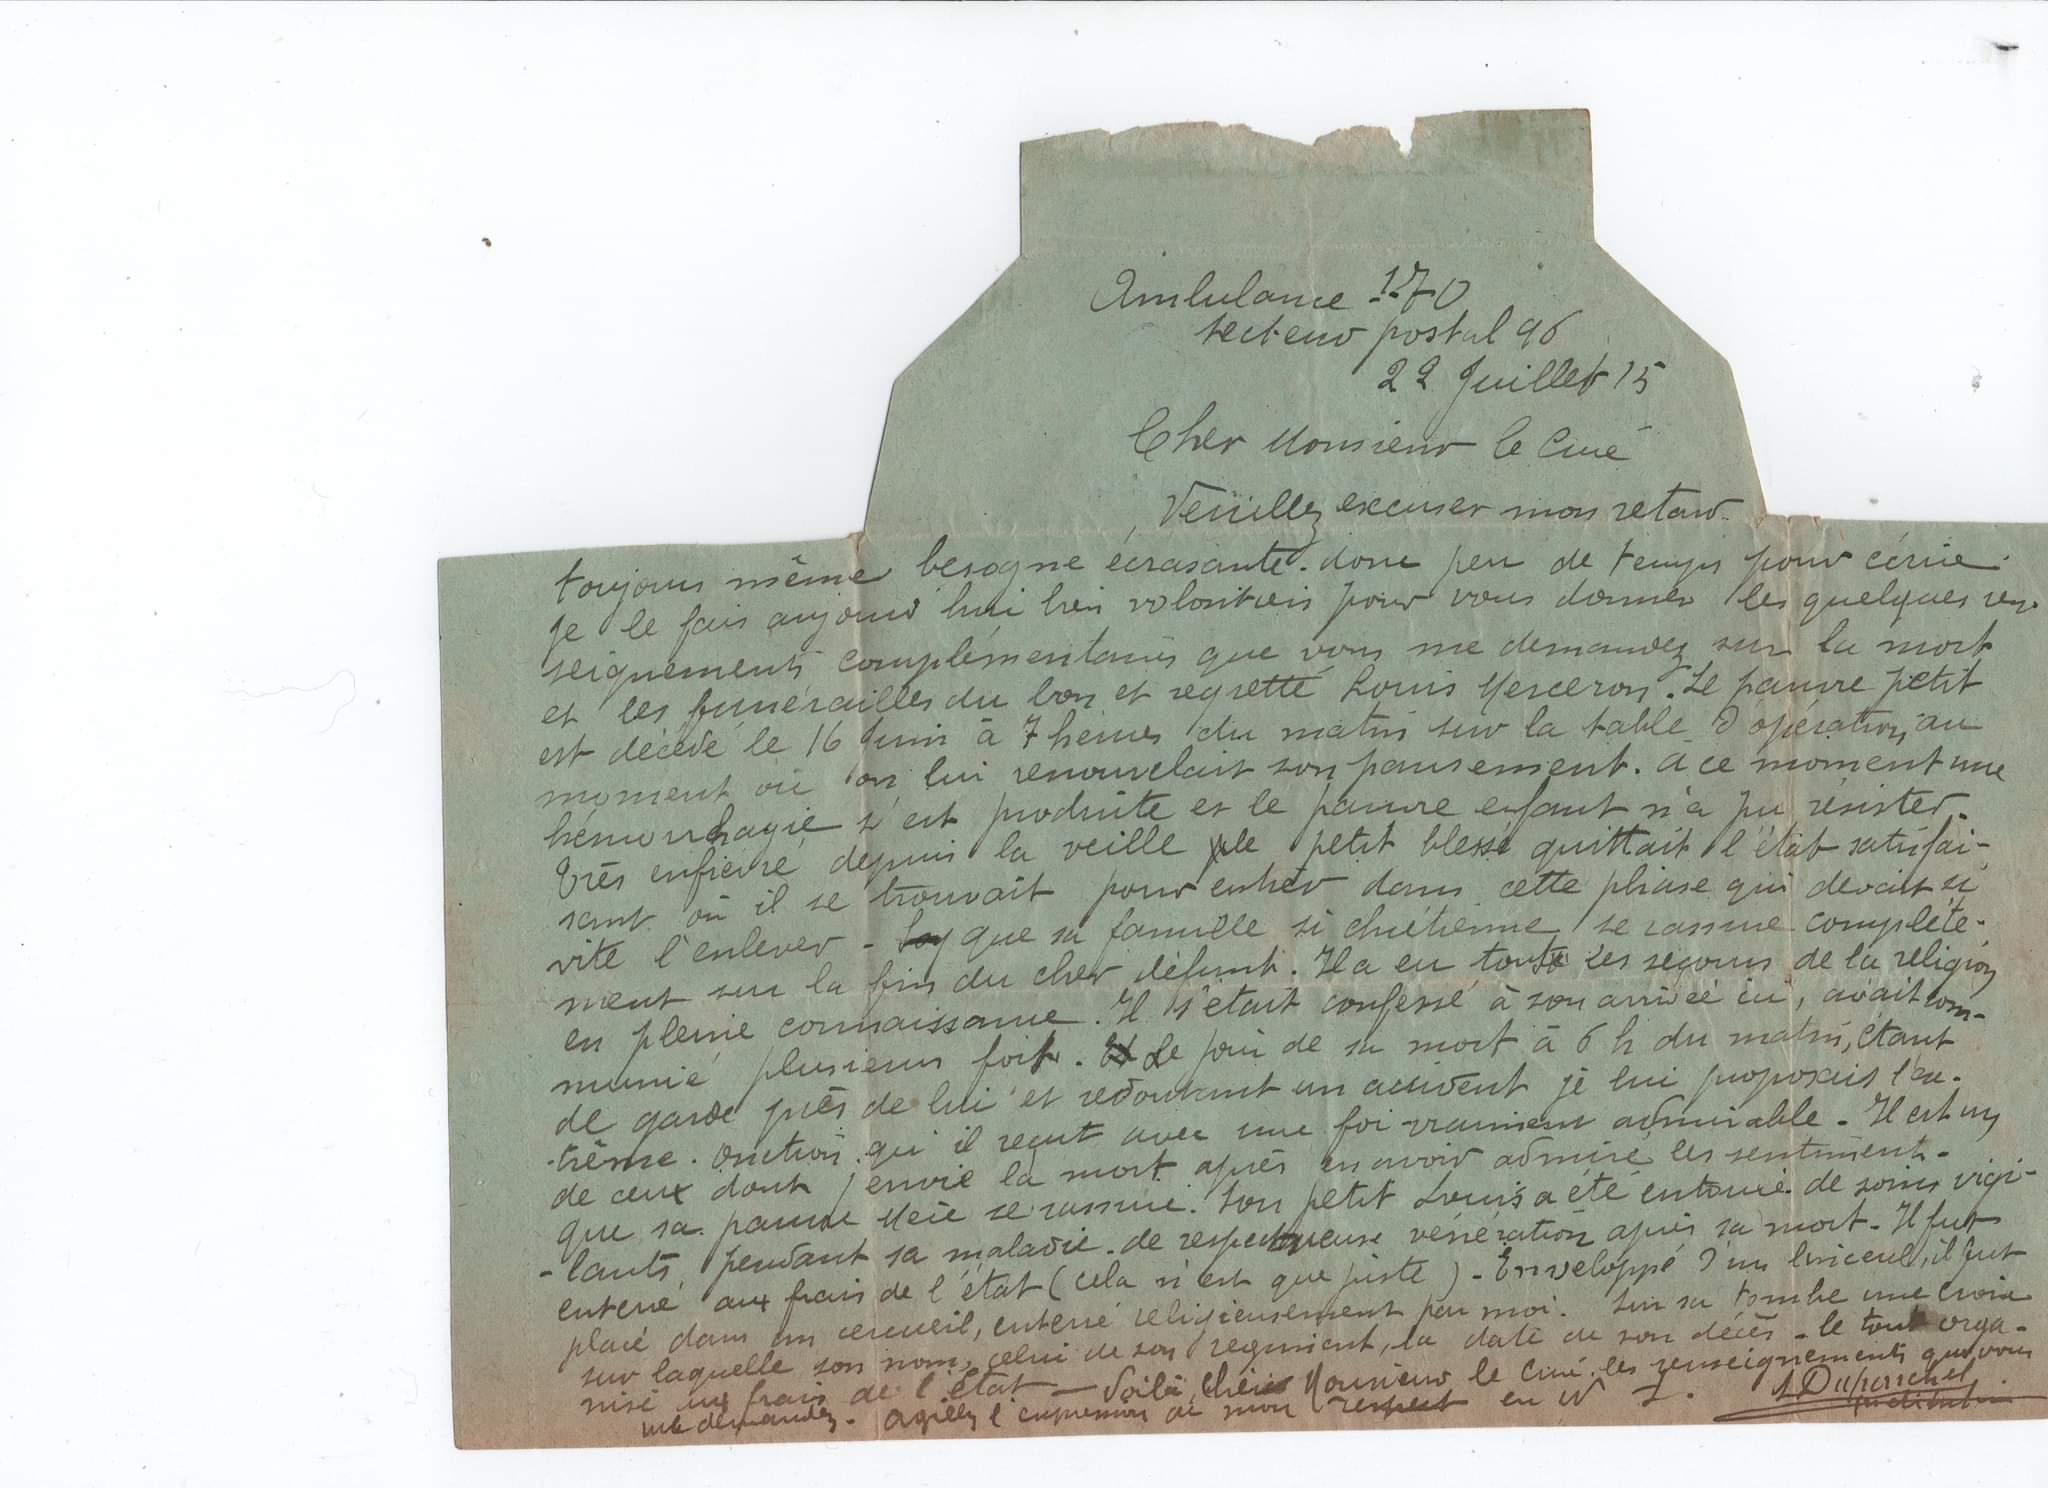 Ambulance 170
secteur postal 96
22 Juillet 15
Cher Monsieur le Curé
Veuillez excuser mon retard.
toujours même besogne écrasante. donc peu de temps pour écrire.
je le fais aujourd'hui bien volontiers pour vous donner les quelques ren-
seignements complémentaires que vous me demandez sur la mort
et les funérailles du bon et regretté Louis Merceron. Le pauvre petit
est décédé le 16 Juin à 7 heures du matin sur la table d'opération, au
moment où on lui renouvelait son pansement. à ce moment une
hémorrhagie s'est produite et le pauvre enfant n'a pu résister.
Très enfiévré depuis la veille le petit blessé quittait l'état satisfai-
sant où il se trouvait pour entrer dans cette phase qui devait si
vite l'enlever - que sa famille si chrétienne se rassure complète-
ment sur la fin du cher défunt. Il a eu tous les secours de la religion
en pleine connaissance. Il s'était confessé à son arrivée ici, avait com-
munié plusieurs fois. Le jour de sa mort à 6 h du matin, étant
de garde près de lui et redoutant un accident je lui proposais l'ex-
trême. onction qu'il reçut avec une foi vraiment admirable - Il est un
de ceux dont j'envie la mort après en avoir admiré les sentiments-
que sa pauvre Mère se rassure. Son petit Louis a été entouré de soins vigi-
-lants, pendant sa maladie. de respectueuse vénération après sa mort - Il fut
enterré aux frais de l'état (cela n'est que juste) - Enveloppé d'un linceul, il fut
placé dans un cercueil, enterré religieusement par moi. Sur sa tombe une croix
sur laquelle son nom, celui de son régiment, la date de son décès - le tout orga-
nisé aux frais de l'état - Voilà, cher Monsieur le Curé les renseignements que vous
me demandez. agréez l'expression de mon respect en N S.